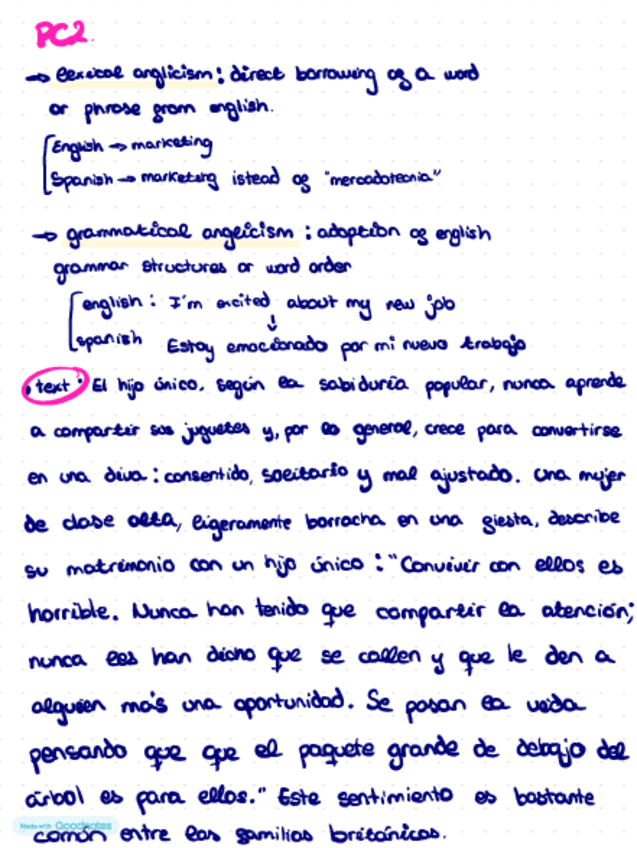 PC2
→ lexical anglicism: direct borrowing of a word
or phrase from english.
English → marketing
Spanish → marketing istead of "mercadotecnia"
→ grammatical anglicism: adoption of english
grammar structures or word order
english: I'm excited about my new job
↓
spanish Estoy emocionado por mi nuevo trabajo
• text: El hijo único, según la sabiduría popular, nunca aprende
a compartir sus juguetes y, por lo general, crece para convertirse
en una diva: consentido, solitario y mal ajustado. Una mujer
de clase alta, ligeramente borracha en una fiesta, describe
su matrimonio con un hijo único: "Convivir con ellos es
horrible. Nunca han tenido que compartir la atención;
nunca les han dicho que se callen y que le den a
alguien más una oportunidad. Se pasan la vida
pensando que que el paquete grande de debajo del
árbol es para ellos." Este sentimiento es bastante
Made with Goodnotes
común entre las familias británicas.